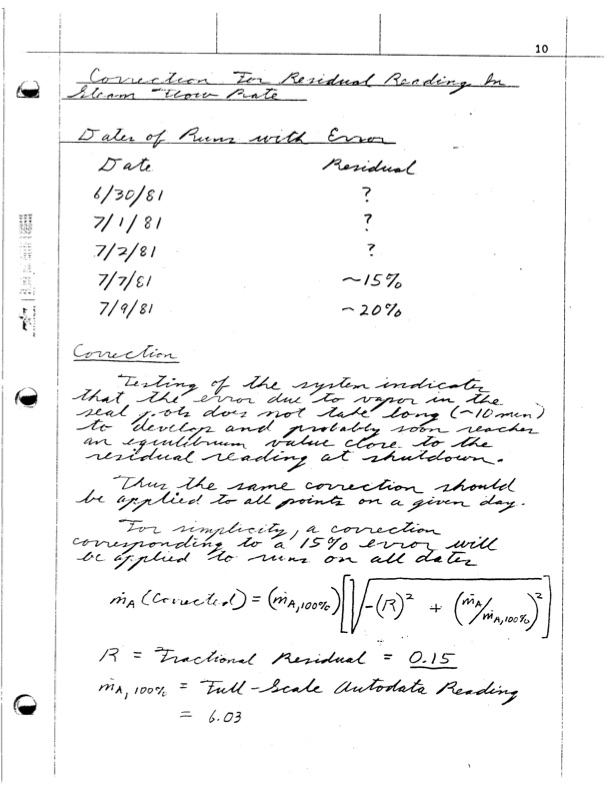 10
Correction For Residual Reading In
Steam Flow Rate
Dates of Runs with Error
Date Residual
6/30/81 ?
7/1/81 ?
7/2/81 ?
7/7/81 ~15%
7/9/81 ~20%
Correction
Testing of the system indicates
that the error due to vapor in the
seal pots does not take long (~10 min)
to develop and probably soon reaches
an equilibrium value close to the
residual reading at shutdown.
Thus the same correction should
be applied to all points on a given day.
For simplicity, a correction
corresponding to a 15% error will
be applied to runs on all dates
ṁA (Corrected) = (ṁA,100%) [√(-(R)² + (ṁA/ṁA,100%)²)]
R = Fractional Residual = 0.15
ṁA, 100% = Full-Scale Autodata Reading
= 6.03